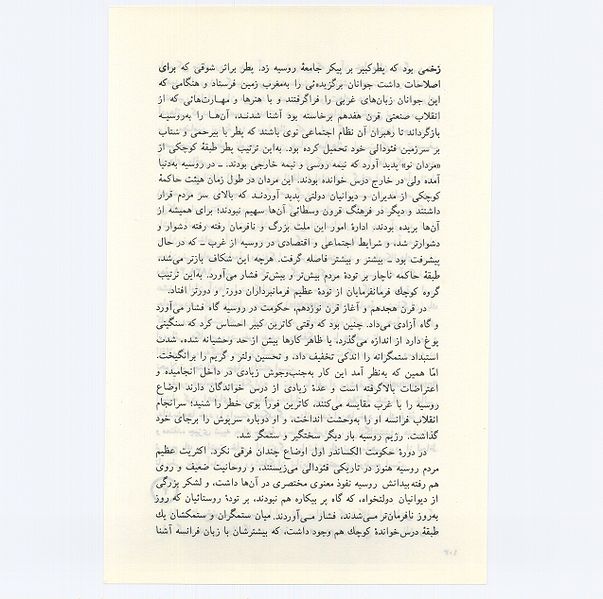 زخمی بود که پطرکبیر بر پیکر جامعهٔ روسیه زد. پطر براثر شوقی که برای
اصلاحات داشت جوانان برگزیده‌ئی را به‌مغرب زمین فرستاد و هنگامی که
این جوانان زبان‌های غربی را فراگرفتند و با هنرها و مهارت‌هائی که از
انقلاب صنعتی قرن هفدهم برخاسته بود آشنا شدند، آن‌ها را به‌روسیه
بازگرداند تا رهبران آن نظام اجتماعی نوی باشند که پطر با بیرحمی و شتاب
بر سرزمین فئودالی خود تحمیل کرده بود. به‌این ترتیب پطر طبقهٔ کوچکی از
«مردان نو» پدید آورد که نیمه روسی و نیمه خارجی بودند. ـ در روسیه به‌دنیا
آمده ولی در خارج درس خوانده بودند. این مردان در طول زمان هیئت حاکمهٔ
کوچکی از مدیران و دیوانیان دولتی پدید آوردند که بالای سر مردم قرار
داشتند و دیگر در فرهنگ قرون وسطائی آن‌ها سهیم نبودند؛ برای همیشه از
آن‌ها بریده بودند. ادارهٔ امور این ملت بزرگ و نافرمان رفته رفته دشوار و
دشوارتر شد، و شرایط اجتماعی و اقتصادی در روسیه از غرب ـ که در حال
پیشرفت بود ـ بیشتر و بیشتر فاصله گرفت. هرچه این شکاف بازتر می‌شد،
طبقهٔ حاکمه ناچار بر تودهٔ مردم بیش‌تر و بیش‌تر فشار می‌آورد. به‌این ترتیب
گروه کوچك فرمانفرمایان از تودهٔ عظیم فرمانبرداران دورتر و دورتر افتاد.
در قرن هجدهم و آغاز قرن نوزدهم، حکومت در روسیه گاه فشار می‌آورد
و گاه آزادی می‌داد. چنین بود که وقتی کاترین کبیر احساس کرد که سنگینی
یوغ دارد از اندازه می‌گذرد، یا ظاهر کارها بیش از حد وحشیانه شده، شدت
استبداد ستمگرانه را اندکی تخفیف داد، و تحسین ولتر و گریم را برانگیخت.
امّا همین که به‌نظر آمد این کار به‌جنب‌وجوش زیادی در داخل انجامیده و
اعتراضات بالاگرفته است و عدهٔ زیادی از درس خواندگان دارند اوضاع
روسیه را با غرب مقایسه می‌کنند، کاترین فوراً بوی خطر را شنید؛ سرانجام
انقلاب فرانسه او را به‌وحشت انداخت، و او دوباره سرپوش را برجای خود
گذاشت. رژیم روسیه بار دیگر سختگیر و ستمگر شد.
در دورهٔ حکومت الکساندر اول اوضاع چندان فرقی نکرد. اکثریت عظیم
مردم روسیه هنوز در تاریکی فئودالی می‌زیستند، و روحانیت ضعیف و روی
هم رفته بیدانش روسیه نفوذ معنوی مختصری در آن‌ها داشت، و لشکر بزرگی
از دیوانیان دولتخواه، که گاه پر بیکاره هم نبودند، بر تودهٔ روستائیان که روز
به‌روز نافرمان‌تر می‌شدند، فشار می‌آوردند. میان ستمگران و ستمکشان یك
طبقهٔ درس‌خواندهٔ کوچك هم وجود داشت، که بیشترشان با زبان فرانسه آشنا